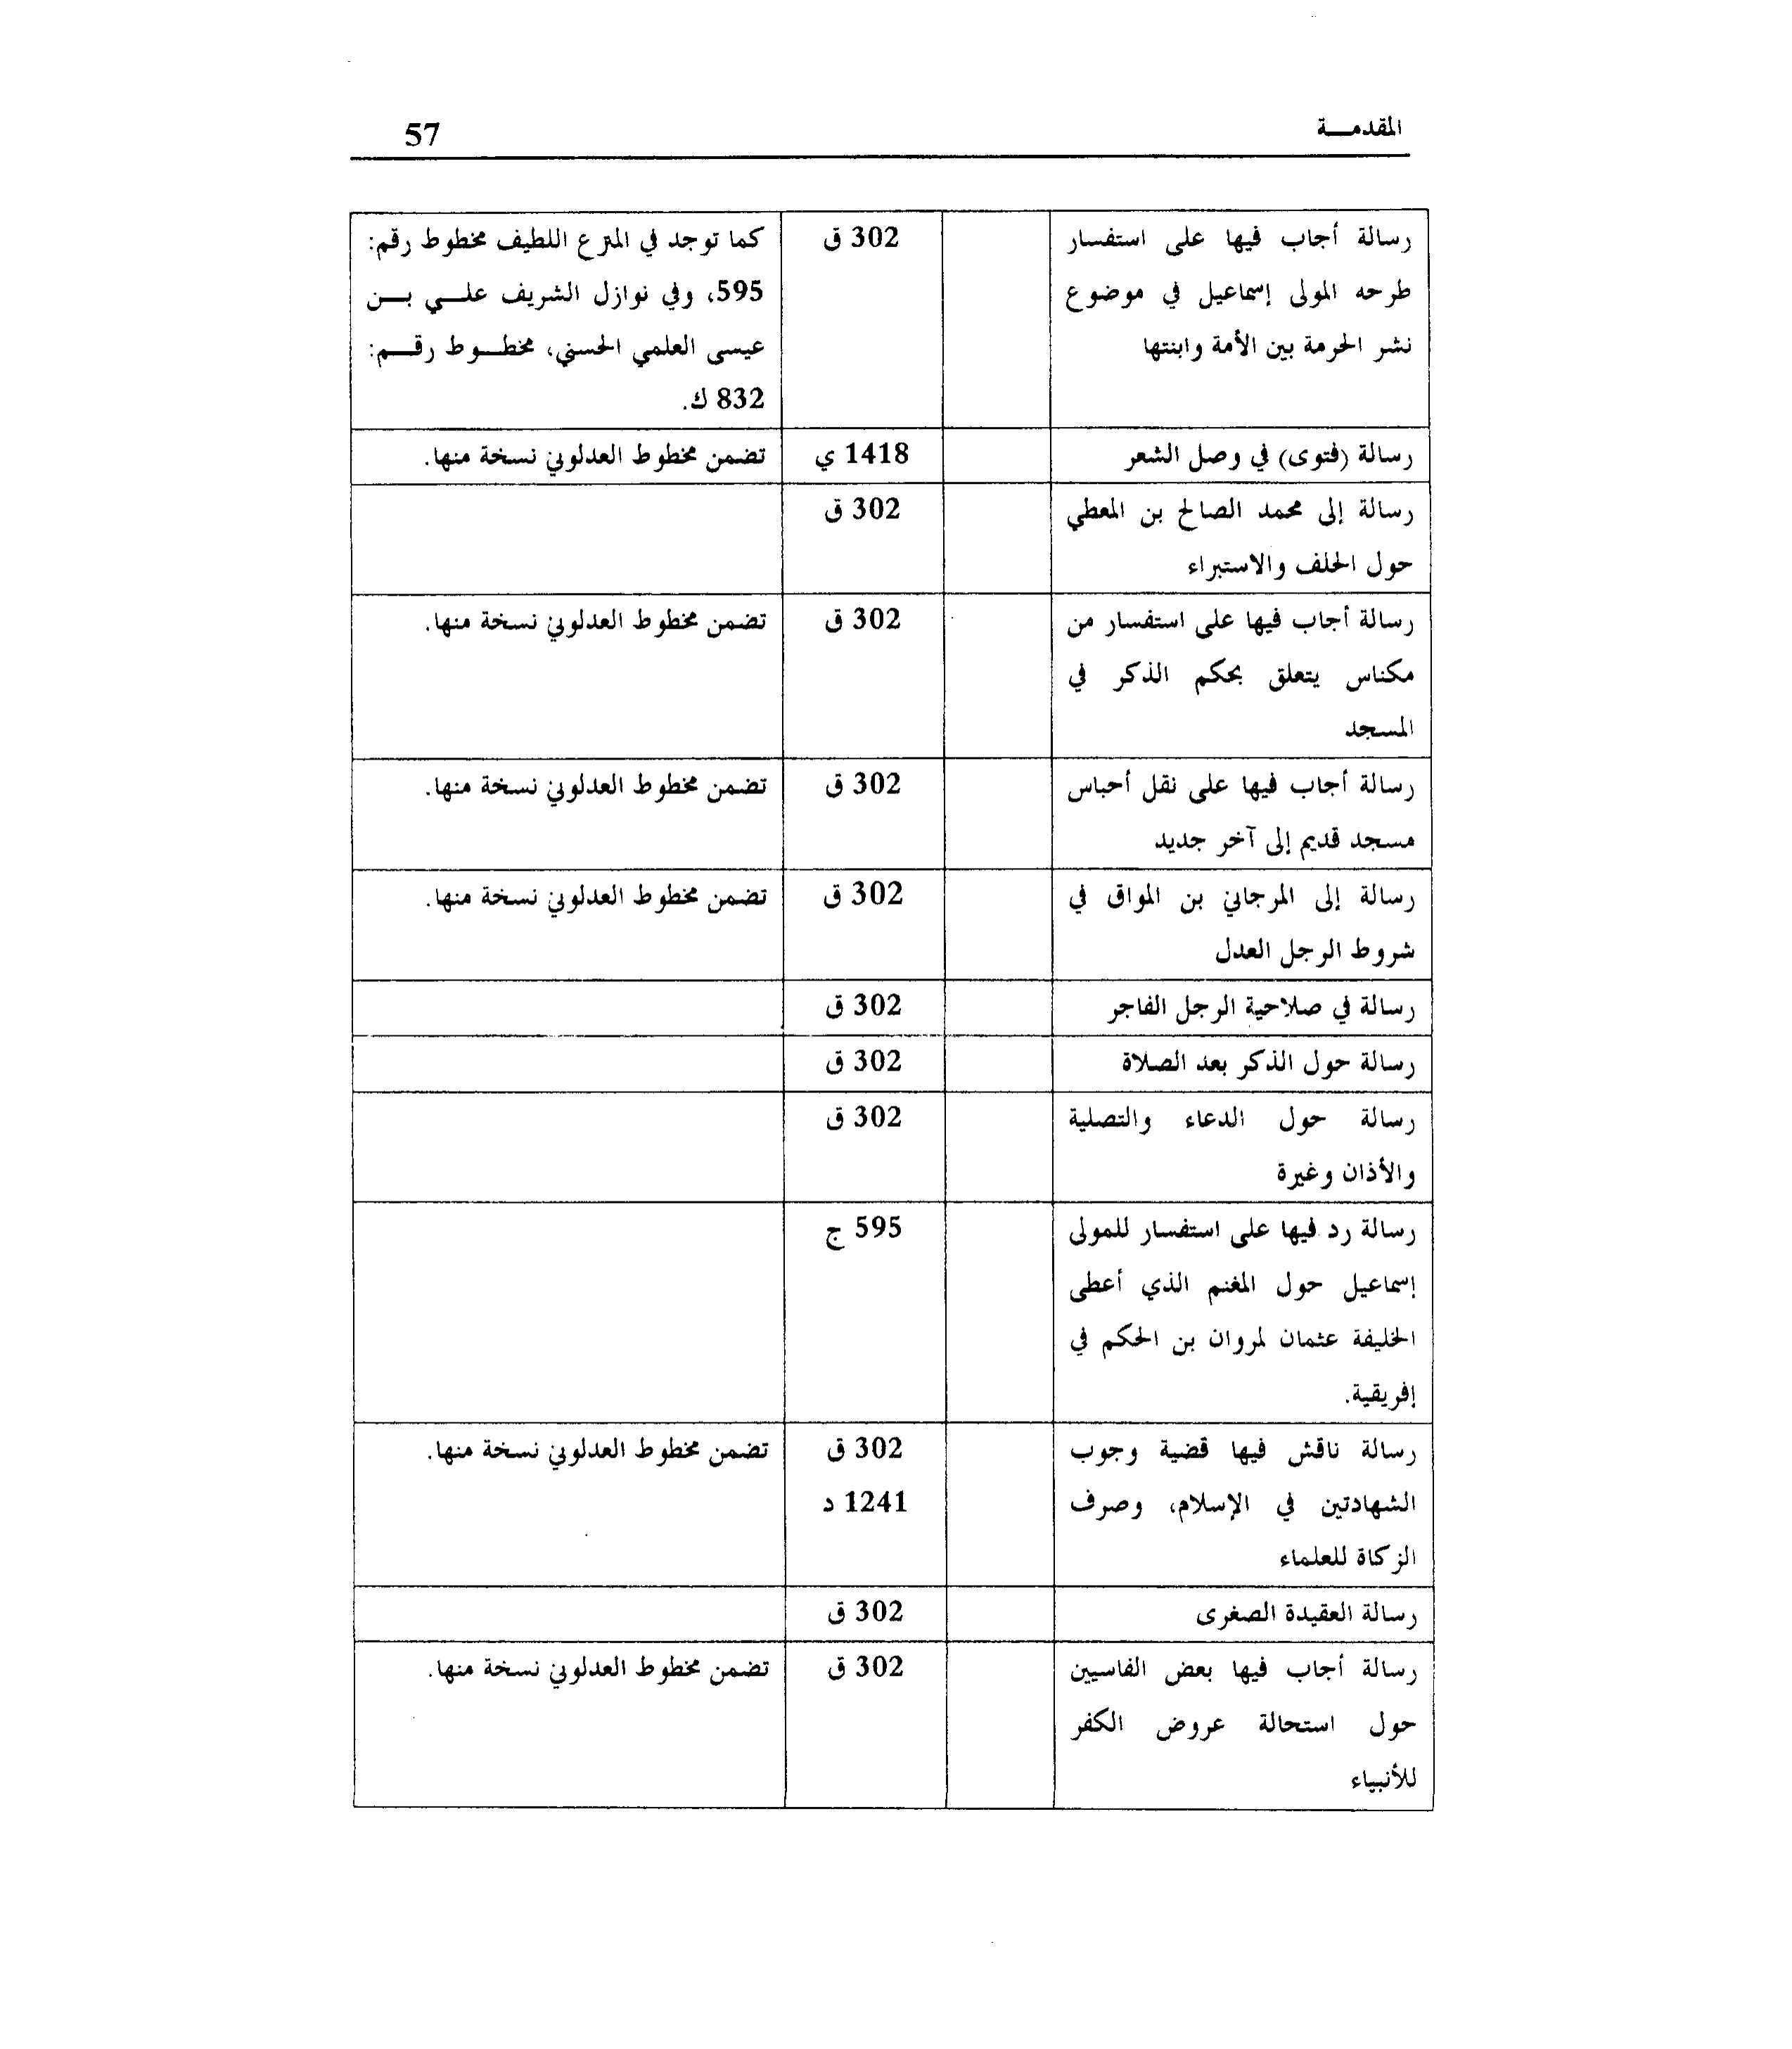 المقدمـــة
57
رسالة أجاب فيها على استفسار
طرحه المولى إسماعيل في موضوع
نشر الحرمة بين الأمة وابنتها
302 ق
كما توجد في المترع اللطيف مخطوط رقم:
595، وفي نوازل الشريف علـــي بـــن
عيسى العلمي الحسني، مخطـــوط رقـــم:
832 ك.
رسالة (فتوى) في وصل الشعر
1418 ي
تضمن مخطوط العدلوني نسخة منها.
رسالة إلى محمد الصالح بن المعطي
حول الحلف والاستبراء
302 ق
رسالة أجاب فيها على استفسار من
مكناس يتعلق بحكم الذكر في
المسجد
302 ق
تضمن مخطوط العدلوني نسخة منها.
رسالة أجاب فيها على نقل أحباس
مسجد قديم إلى آخر جديد
302 ق
تضمن مخطوط العدلوني نسخة منها.
رسالة إلى المرجاني بن المواق في
شروط الرجل العدل
302 ق
تضمن مخطوط العدلوني نسخة منها.
رسالة في صلاحية الرجل الفاجر
302 ق
رسالة حول الذكر بعد الصلاة
302 ق
رسالة حول الدعاء والتصلية
والأذان وغيرة
302 ق
رسالة رد فيها على استفسار للمولى
إسماعيل حول المغنم الذي أعطى
الخليفة عثمان لمروان بن الحكم في
إفريقية.
595 ج
رسالة ناقش فيها قضية وجوب
الشهادتين في الإسلام، وصرف
الزكاة للعلماء
302 ق
1241 د
تضمن مخطوط العدلوني نسخة منها.
رسالة العقيدة الصغرى
302 ق
رسالة أجاب فيها بعض الفاسيين
حول استحالة عروض الكفر
للأنبياء
302 ق
تضمن مخطوط العدلوني نسخة منها.